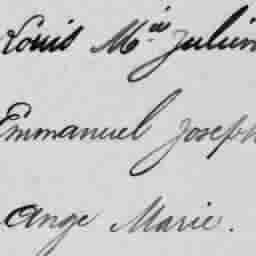 Louis Mie Julien
Emmanuel Joseph
Ange Marie.